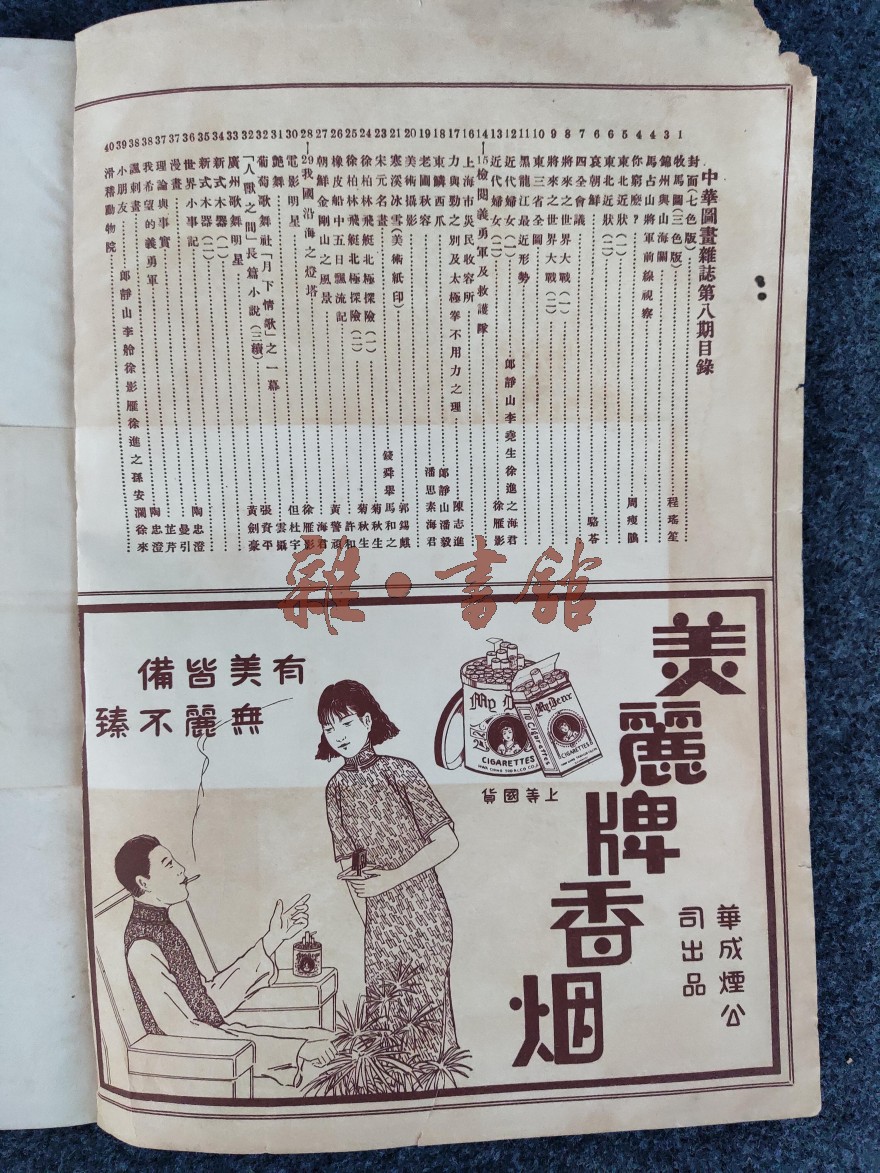 中華圖畫雜誌第八期目錄
封面(七色版)
1 牧馬圖(三色版) 程瑤笙
3 錦州與山海關
4 馬占山將軍前線視察
4 你窮麽? 周瘦鵑
5 東北近狀(一)
6 東北近狀(二)
6 哀朝鮮 駱荅
7 四全會議
8 將來之世界大戰(一)
9 將來之世界大戰(二)
10 東三省全圖
11 黑龍江最近形勢
12 近代婦女(一) 郎靜山李堯生徐進之海君
13 近代婦女(二) 徐雁影
14—15 檢閱義勇軍及救護隊
16 上海市災民收容所
17 力與勁之別及太極拳不用力之理 陳志進
18 東鱗西爪 郎靜山潘毅
19 老圃秋容 潘思素海君
20 美術攝影 郭錫麒
21 寒溪冰雪(美術紙印) 馬和之
23 宋元名畫 錢舜舉
24 徐柏林飛艇北極探險(一) 菊秋生
25 徐柏林飛艇北極探險(二) 菊秋生
26 橡皮船中五日飄流記 許和
27 朝鮮金剛山之風景 黃警頑
28—29 我國沿海之燈塔 海君
30 電影明星 徐雁影
31 艷舞 但杜宇
32 葡萄歌舞社「月下情歌」之一幕 雲攝
32 「人獸之間」長篇小說(三續) 張資平
33 廣州歌舞明星 黃劍豪
34 新式木器(一)
35 新式木器(二)
36 世界小事記 陶忠澄
37 漫畫 曼引
37 理論與事實 芷芹
38 我希望的義勇軍 陶忠澄
38 諷刺畫
39 小朋友 郎靜山李舲徐影雁徐進之孫安瀾徐來
40 滑稽動物院
雜·書館
美麗牌香烟
華成煙公
司出品
有美皆備
無麗不臻
My Dear
CIGARETTES
HWA CHING TOBACCO CO.
My Dear
Cigarettes
CIGARETTES
上等國貨